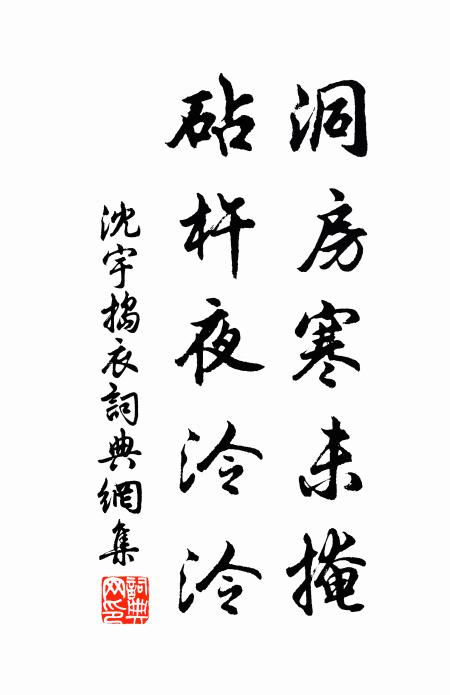 洞房寒未掩
砧杵夜泠泠
沈宇搗衣詞典網集
詞典網印